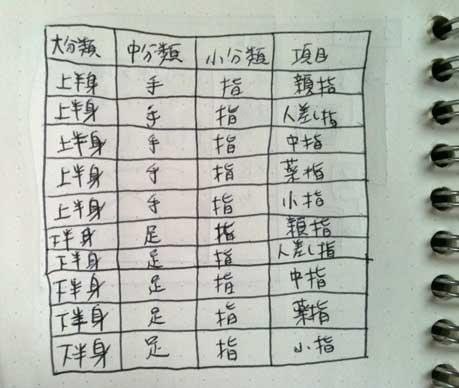 大分類 中分類 小分類 項目
上半身 手 指 親指
上半身 手 指 人差し指
上半身 手 指 中指
上半身 手 指 薬指
上半身 手 指 小指
下半身 足 指 親指
下半身 足 指 人差し指
下半身 足 指 中指
下半身 足 指 薬指
下半身 足 指 小指